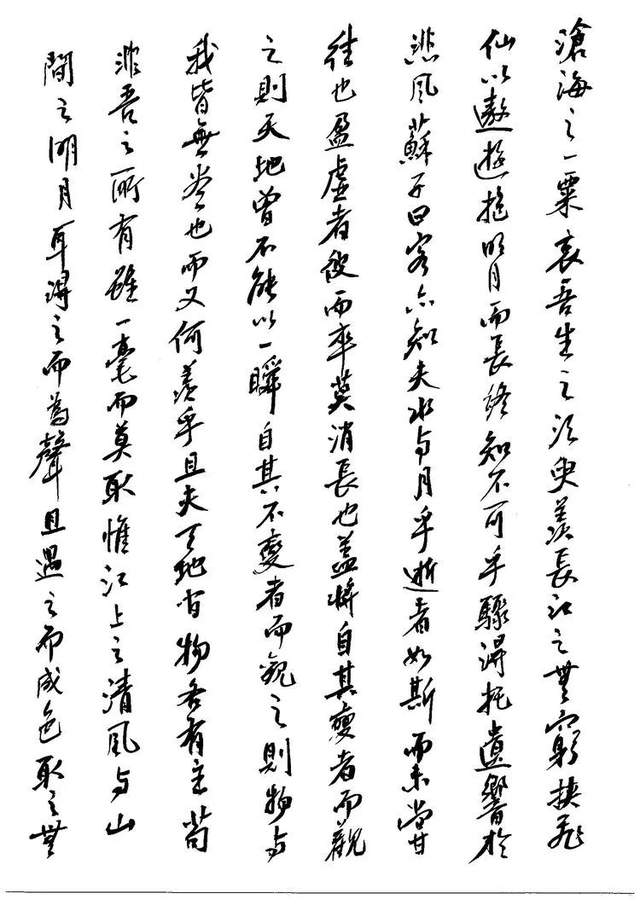 滄海之一粟哀吾生之須臾羨長江之無窮挾飛
仙以遨遊抱明月而長終知不可乎驟得托遺響於
悲風蘇子曰客亦知夫水与月乎逝者如斯而未嘗
往也盈虛者彼而卒莫消長也蓋將自其變者而觀
之則天地曾不能以一瞬自其不變者而觀之則物与
我皆無盡也而又何羨乎且夫天地物各有主苟
非吾之所有雖一毫而莫取惟江上之清風与山
間之明月耳得之而為聲目遇之而成色取之無